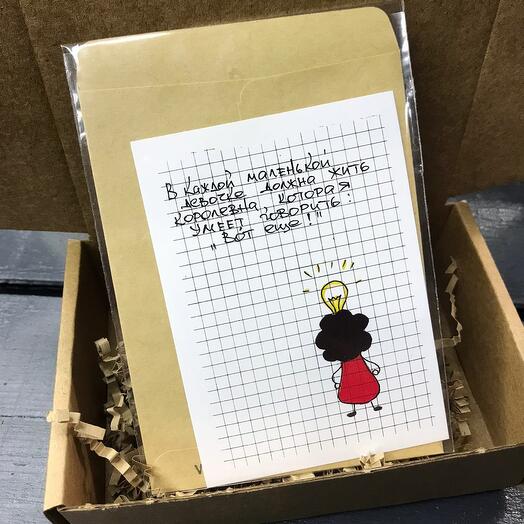 В каждой маленькой
девочке должна жить
королевна, которая
умеет говорить:
"Вот еще!"